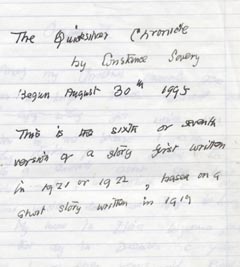 The Quicksilver Chronicle
by Constance Savery
begun August 30th 1995
This is the sixth or seventh
version of a story first written
in 1921 or 1922, based on a
Ghost story written in 1919